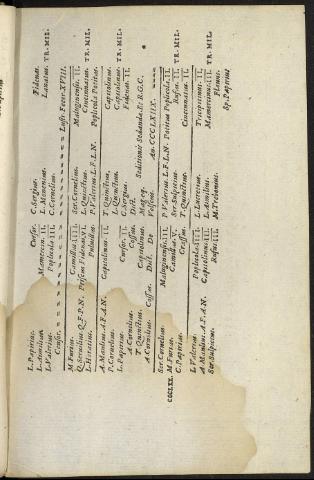 L.Papirius. Cursor. C.Sergius. Fidenas.
L.Aemilius. Mamercin. II. L.Menenius. Lanatus. TR. MIL.
L.Valerius. Poplicola III. C.Cornelius.
Censor. Lustr. Fecer. XVIII.
M.Furius. Camillus IIII. Ser.Cornelius. Maluginensis. II.
Q.Servilius. Q.F.P.N. Priscus Fidenas. L.Quinctius. Cincinnatus. TR. MIL.
L.Horatius. Pulvillus. P.Valerius L.F.L.N. Poplicola Potitus.
A.Manlius. A.F.A.N. Capitolinus. II. T.Quinctius. Capitolinus.
P.Cornelius. L.Quinctius. Capitolinus. TR. MIL.
L.Papirius. Cursor. II. C.Sergius. Fidenas. II.
A.Cornelius. Cossus. Dict.
T.Quinctius. Capitolinus. Mag.eq. Seditionis Sedanda. Et R.G.C.
A.Cornelius. Cossus. Dict. De An. CCCLXIX.
Ser.Cornelius. Maluginensis. III. P.Valerius L.F.L.N. Potitus Poplicola. II.
CCCLXX. M.Furius. Camillus. V. Ser.Sulpicius. Rufus. II. TR. MIL.
C.Papirius. Crassus. T.Quinctius. Cincinnatus. II.
L.Valerius. Poplicola IIII. L.Lucretius. Tricipitinus. II.
A.Manlius. A.F.A.N. Capitolinus III. L.Aemilius. Mamercinus. III. TR. MIL.
Ser.Sulpicius. Rufus III. M.Trebonius. Flavus.
Sp.Papirius